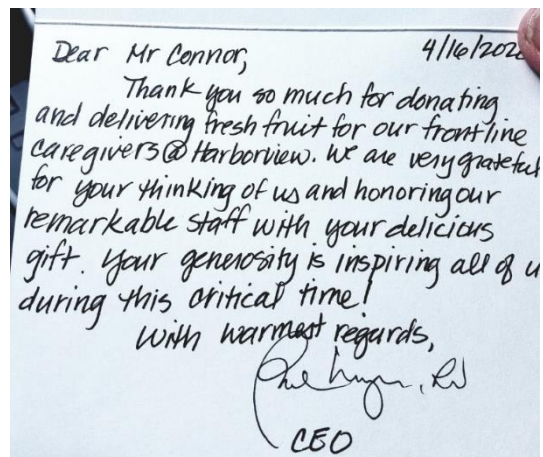 Dear Mr Connor,
4/16/202
Thank you so much for donating
and delivering fresh fruit for our frontline
caregivers @ Harborview. We are very grateful
for your thinking of us and honoring our
remarkable staff with your delicious
gift. Your generosity is inspiring all of u
during this critical time!
With warmest regards,
CEO